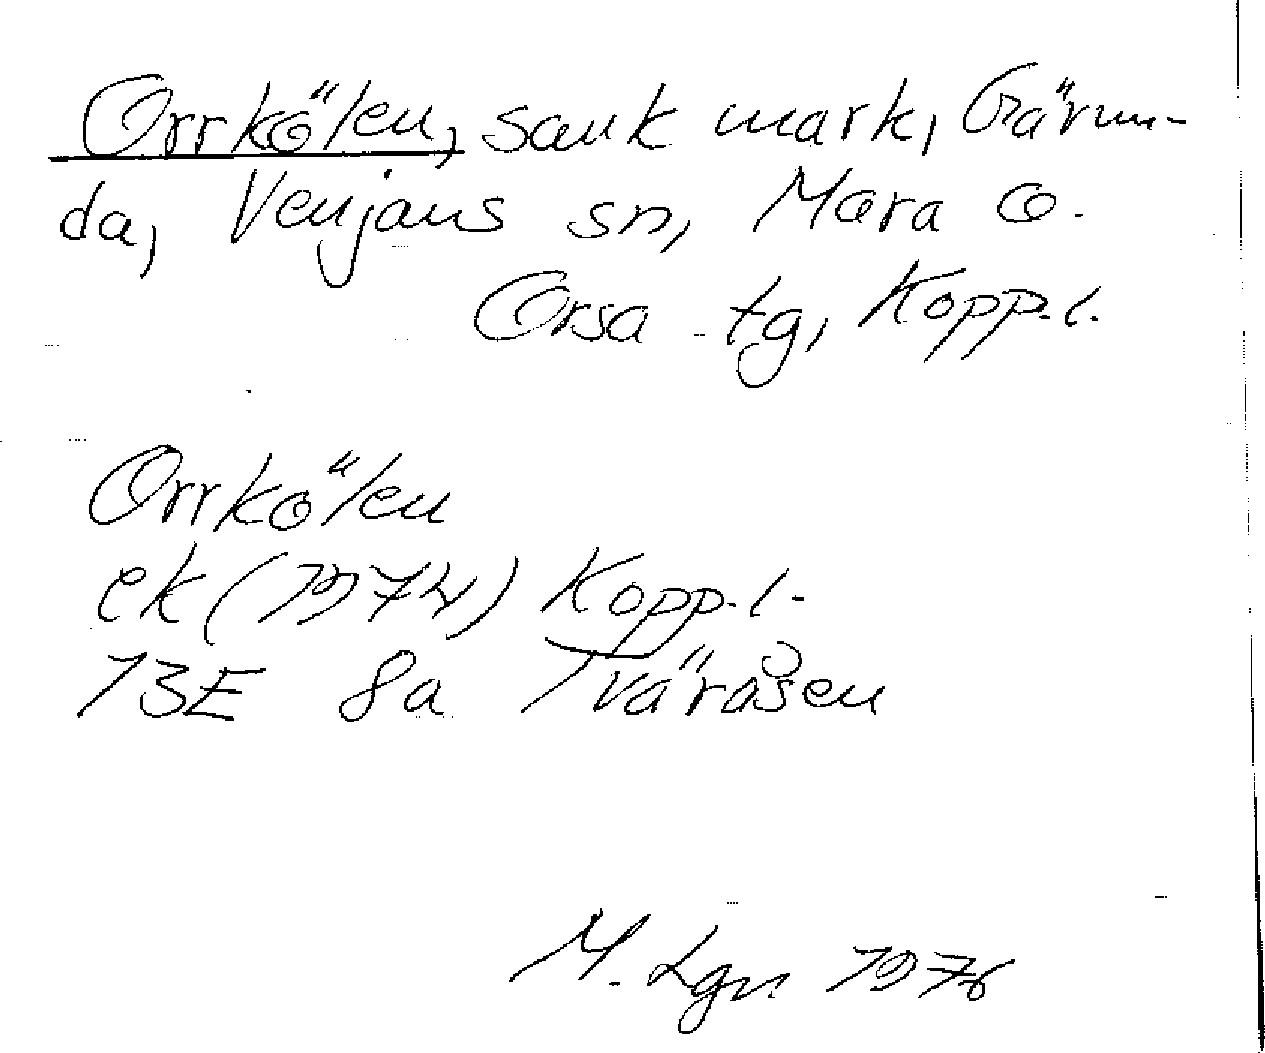 Orrkölen, sank mark, Gärun-
da, Venjans sn, Mora o.
Orsa tg, Kopp.l.
Orrkölen
ek (1974) Kopp.l.
13E 8a Tväråsen
M. Lgn 1976